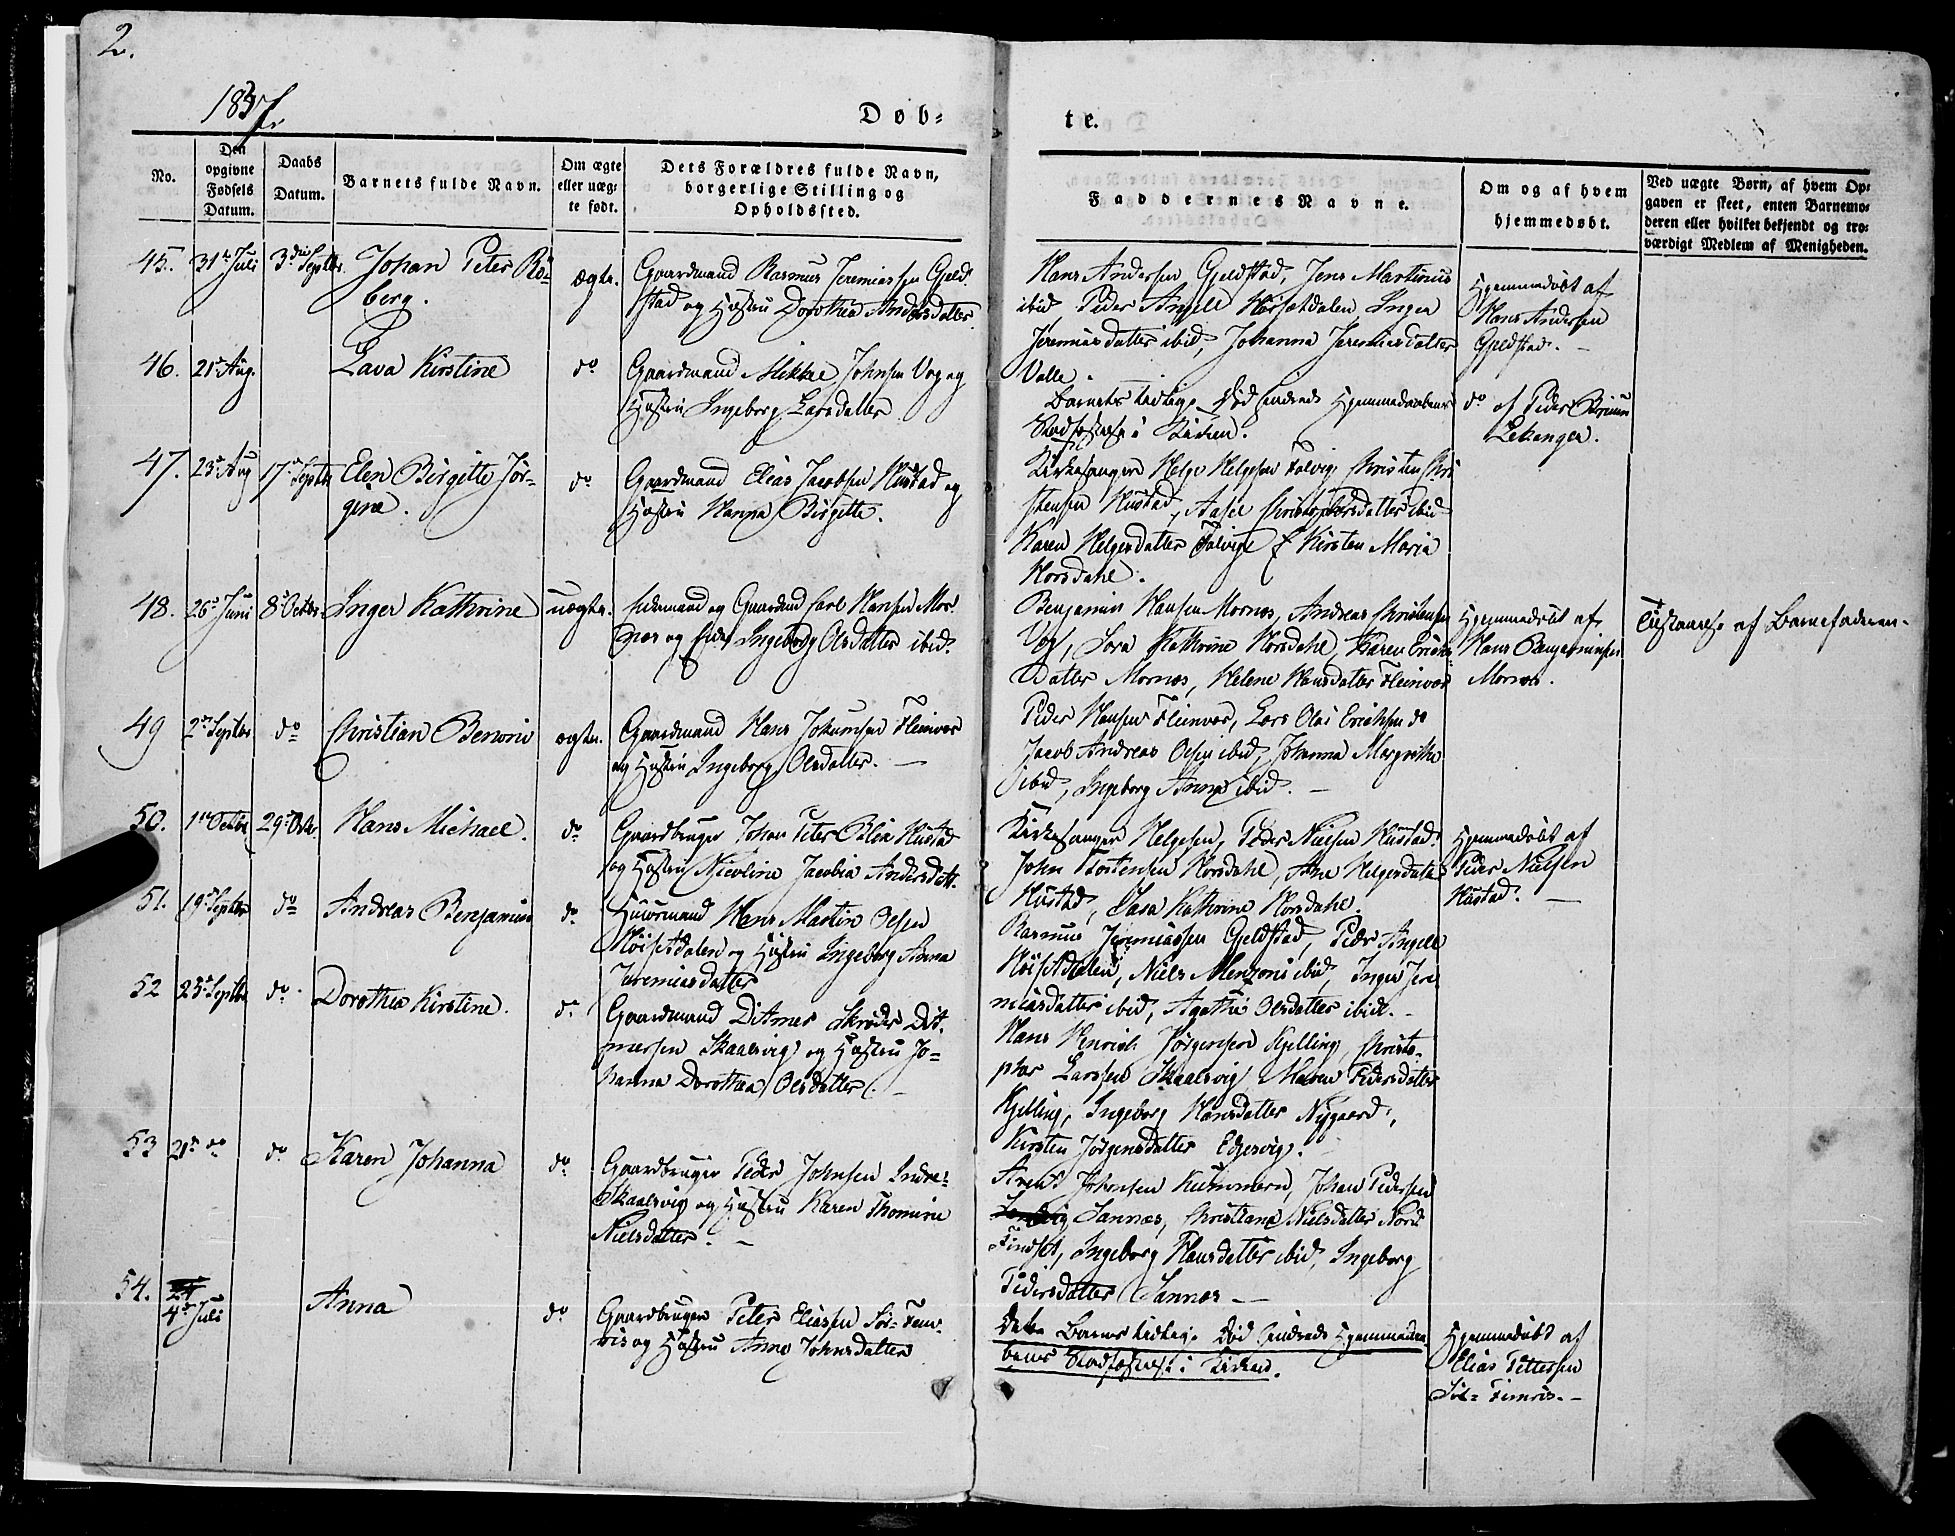 2.
1837.
Døb=
te.
No.
Den opgivne Fødsels Datum.
Daabs Datum.
Barnets fulde Navn.
Om ægte eller uægte født.
Dets Forældres fulde Navn, borgerlige Stilling og Opholdssted.
Faddernes Navne.
Om og af hvem hjemmedøbt.
Ved uægte Børn, af hvem Op=
gaven er skeet, enten Barnemo=
deren eller hvilket bekjendt og tro=
værdigt Medlem af Menigheden.
45. 31te Juli 3die Septbr. Johan Peter Rö=
berg.
ægte.
Gaardmand Rasmus Jeremiassen Gjeld=
stad og Hustru Dorothea Andersdatter.
Hans Andersen Gjeldstad, Jens Martinus
ibid Peder Angell Inger
Jeremiasdatter ibid, Johanna Jeremiasdatter
Valle.
Hjemmedöbt af
Hans Andersen
Gjeldstad.
46. 21de Aug. Lava Kirstine do
Gaardmand Mikkel Johnsen Vog og
Hustru Ingeborg Larsdatter
Barnets tidlige Död hindrede Hjemmedaabens
Stadfæstelse i Kirken.
do af Peder
Lekanger.
47. 23de Aug 17de Septbr Elen Birgitte Jör=
gine.
do
Gaardmand Elias Jacobsen Hustad og
Hustru Hanna Birgitte.
Kirkesanger Helge Helgesen Chri
stensen Hustad, Christophersdatter ibid
Karen Helgesdatter & Kirsten Maria
Horsdahl.
48. 26de Juni 8de Octbr. Inger Kathrine uægte.
og Carl Hansen Mor=
næs og Ingeborg Olsdatter ibid.
Benjamin Hansen Mornæs, Andreas Christensen
Vog, Kathrine Horsdahl, Karen Erichs=
datter Mornæs, Helene Hansdatter Fleinvær
Hjemmedöbt af
Hans Benjaminsen
Mornæs.
Tilstaaelse af Barnefaderen.
49 2den Septbr do Christian Benoni ægte.
Gaardmand Hans Johannsen Fleinvær
og Hustru Ingeborg Olsdatter.
Peder Hansen Fleinvær, Lars Olai Erichsen do
Jacob Andreas Olsen ibid, Johanna Margrethe
ibid, Ingeborg Anna ibid.
50. 1ste Octbr 29de Octbr. Hans Michael. do
Gaardbruger Johan Peter Blix Hustad
og Hustru Nicoline Jacobia Andersdatt.
Kirkesanger Helgesen, Peder Nielsen Hustad.
John Mortensen Horsdahl, Ane Helgesdatter
Hustad, Kathrine Horsdahl.
Hjemmedöbt af
Peder Nielsen
Hustad.
51. 19de Septbr do Andreas Benjamin do
Huusmand Hans Martin Olsen
og Hustru Ingeborg Anna
Jeremiasdatter
Rasmus Jeremiassen Gjeldstad, Peder Angell
Niels ibid, Inger Jere
miasdatter ibid, Olsdatter ibid.
52 23de Septbr do Dorothea Kirstine. do
Gaardmand Ditmer Skröder Dit=
mersen Skaalsvig og Hustru Jo=
hanna Dorothea Olsdatter.
Hans Henrich Jörgensen Kjelling, Christo=
pher Larssen Skaalsvig Maren Pedersdatter
Kjelling, Ingeborg Hansdatter Nygaard,
Kirsten Jörgensdatter
53 21de do do Karen Johanna do
Gaardbruger Peder Johnsen Indre=
Skaalsvig og Hustru Karen Thomine
Nielsdatter.
Arent Johnsen Johan Pedersen
Sannæs, Christiana Nielsdatter Nord
Findset, Ingeborg Hansdatter ibid, Ingeborg
Pedersdatter Sannæs
54. 4de Juli Anna do
Gaardbruger Peter Eliassen Sör=
og Hustru Anne Johnsdatter
Dette Barns tidlige Död hindrede Hjemmedaa
bens Stadfæstelse i Kirken.
Hjemmedöbt af
Elias Pettersen